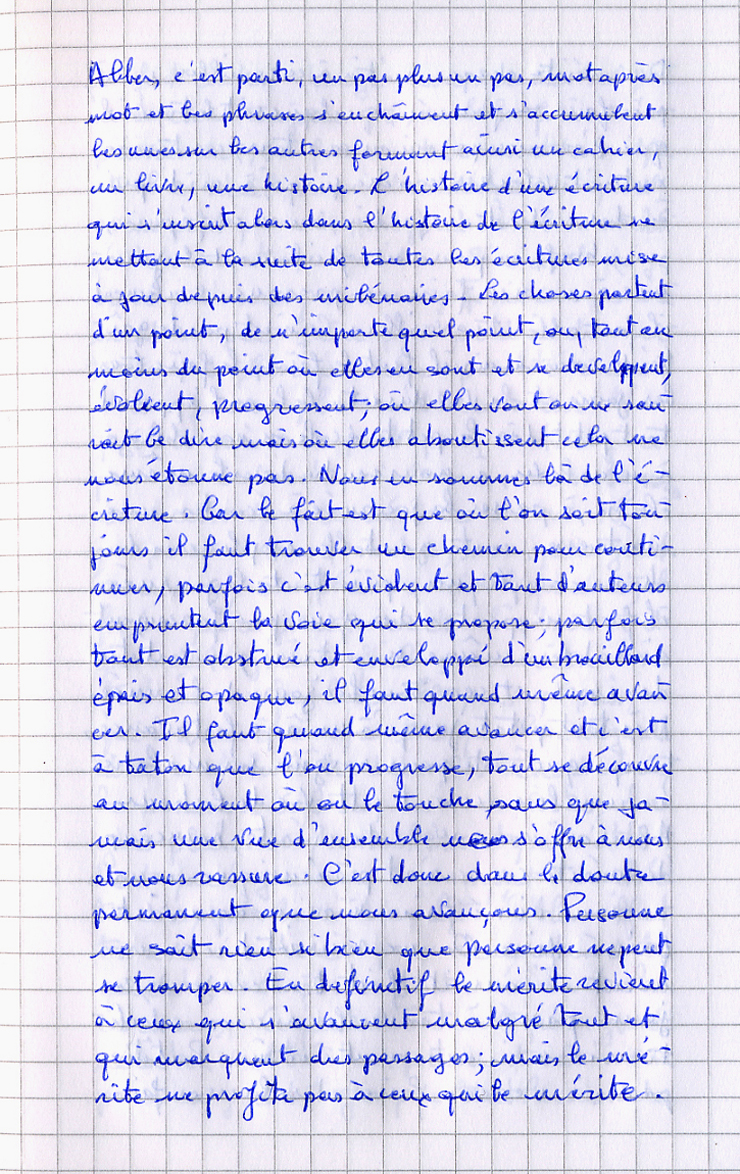 Allez, c'est parti, un pas plus un pas, mot après
mot et les phrases s'enchaînent et s'accumulent
les unes sur les autres forment ainsi un cahier,
un livre, une histoire. L'histoire d'une écriture
qui s'inscrit alors dans l'histoire de l'écriture se
mettant à la suite de toutes les écritures mise
à jour depuis des millénaires. Les choses partent
d'un point, de n'importe quel point, ou, tout au
moins du point où elles en sont et se developpent,
évoluent, progressent; où elles vont on ne sau
rait le dire mais où elles aboutissent cela ne
nous étonne pas. Nous en sommes là de l'é-
criture. Car le fait est que où l'on soit tou
jours il faut trouver un chemin pour conti-
nuer, parfois c'est évident et tant d'auteurs
empruntent la voie qui se propose; parfois
tout est obstrué et enveloppé d'un brouillard
épais et opaque, il faut quand même avan
cer. Il faut quand même avancer et c'est
à taton que l'on progresse, tout se découvre
au moment où on le touche, sans que ja-
mais une vue d'ensemble s'offre à nous
et nous rassure. C'est donc dans le doute
permanent que nous avançons. Personne
ne sait rien si bien que personne ne peut
se tromper. En définitif le mérite revient
à ceux qui s'avancent malgré tout et
qui marquent des passages; mais le mé-
rite ne profite pas à ceux qui le mérite.